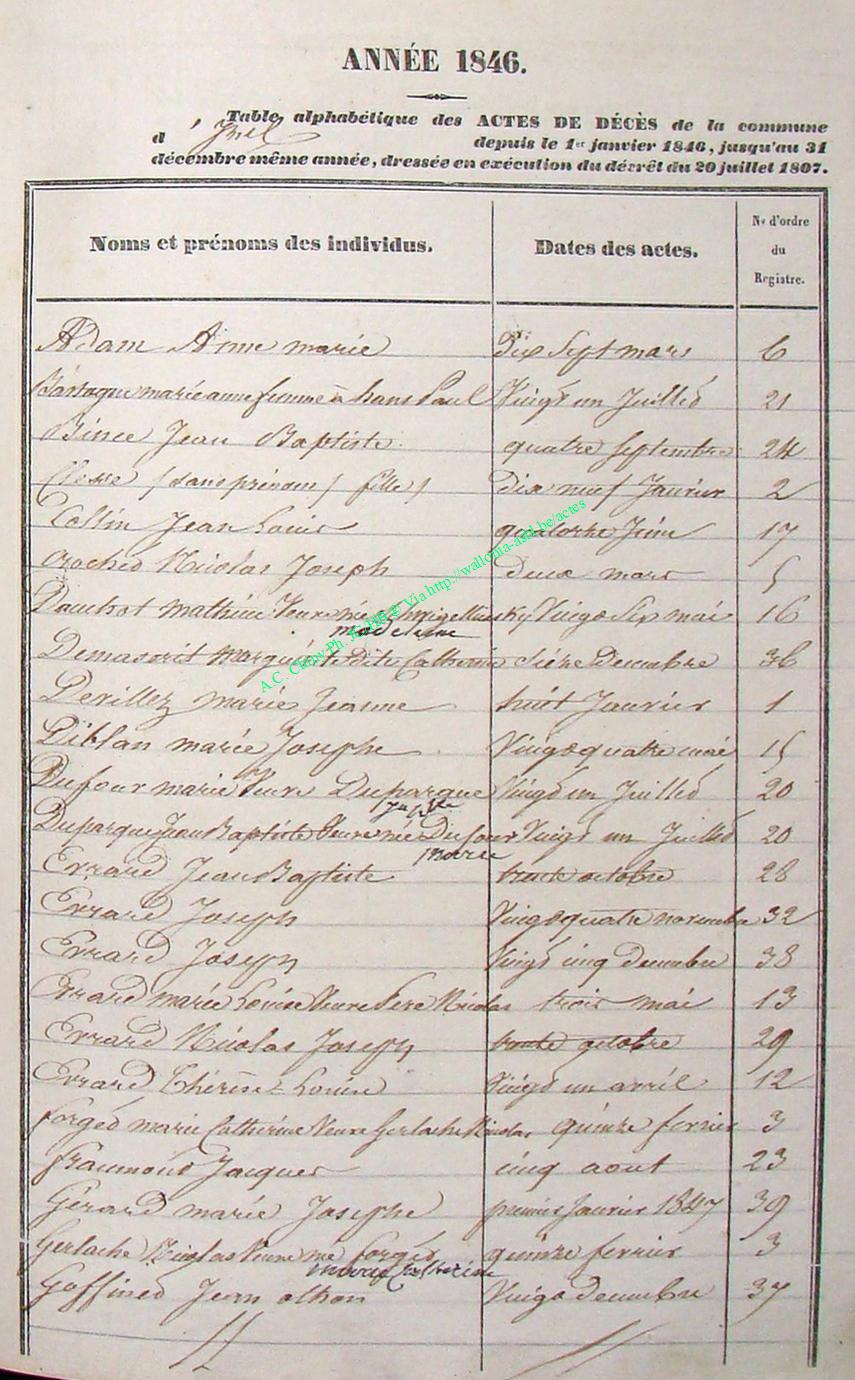 ANNÉE 1846.
Table alphabétique des ACTES DE DÉCÈS de la commune
d' Izel depuis le 1er janvier 1846, jusqu'au 31
décembre même année, dressée en exécution du décrêt du 20 juillet 1807.
Noms et prénoms des individus. Dates des actes. No d'ordre du Registre.
Adam Anne marie dix Sept mars 6
Bastogne marie anne femme à hans Paul Vingt un Juillet 21
Bince Jean Baptiste quatre Septembre 24
Clesse / sans prénom / fille / dix neuf Janvier 2
Collin Jean Louis quatorze Juin 17
Crochet Nicolas Joseph deux mars 5
Dauchot mathieu Veuve née Vingt Six mai 16
madeleine
Demasorit Marguerite dite Catherine Seize Decembre 36
Devillez marie Jeanne huit Janvier 1
Diblan marie Josephe Vingt quatre mai 15
Dufour marie Veuve Duparque Vingt un Juillet 20
Jn Bte
Duparque Jean Baptiste Veuve née Dufour Vingt un Juillet 20
marie
Errard Jean Baptiste trente octobre 28
Errard Joseph Vingt quatre novembre 32
Errard Joseph Vingt cinq decembre 38
Errard marie Louise Veuve Fere Nicolas trois mai 13
Errard Nicolas Joseph trente octobre 29
Errard Thérèse Louise Vingt un avril 12
forget marie Catherine Veuve Gerlache Nicolas quinze fevrier 3
fraumont Jacques cinq aout 23
Gérard marie Josephe premier Janvier 1847 39
Gerlache Nicolas Veuve née forget quinze fevrier 3
marie Catherine
Goffinet Jean othon Vingt decembre 37
A.C. Chiny Ph. Via http://wallonia-asbl.be/actes